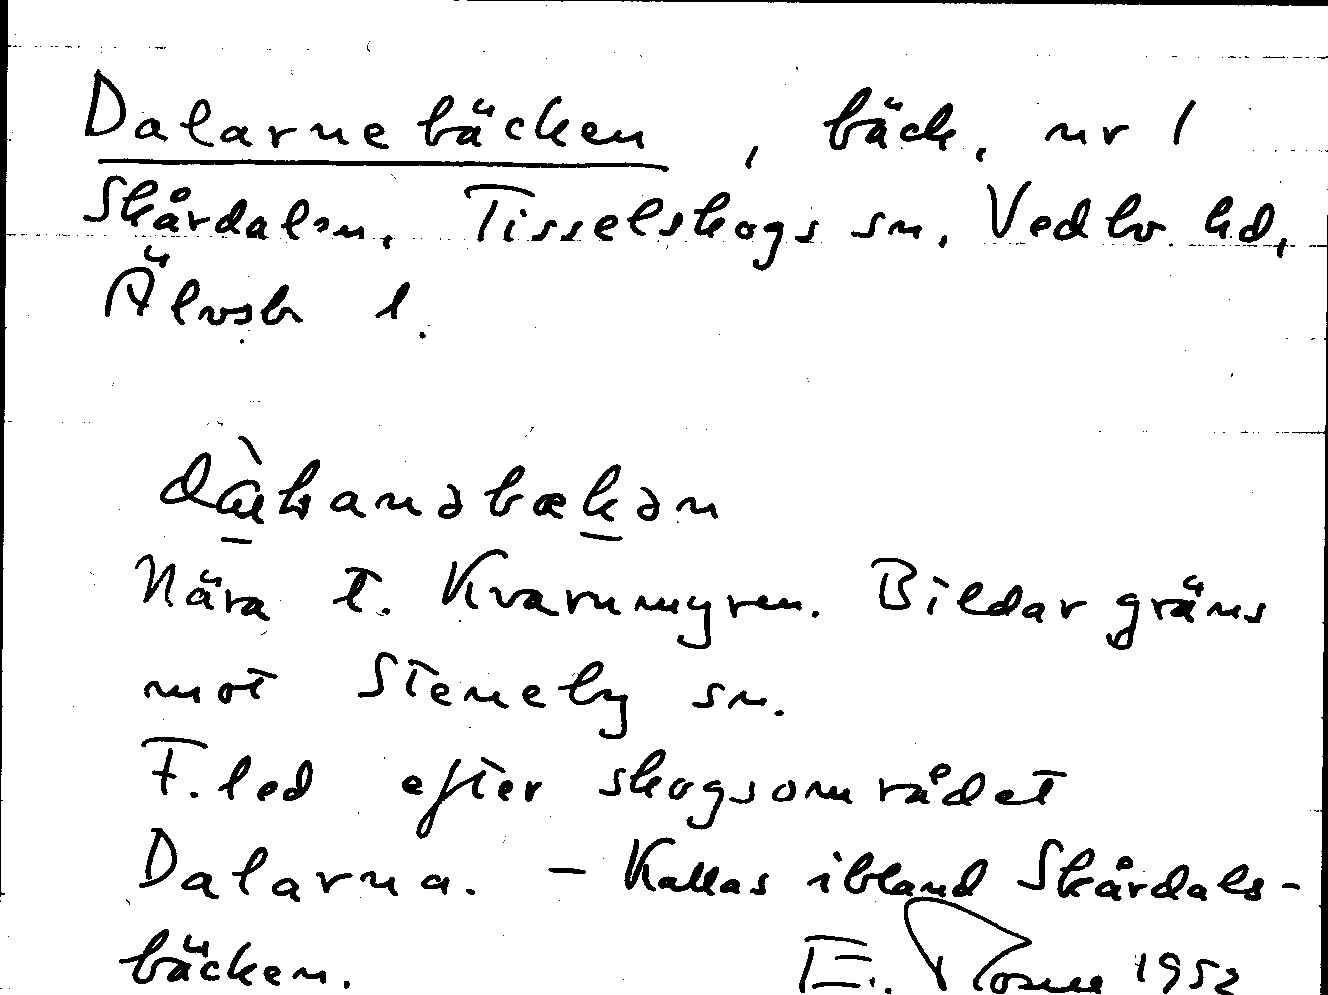 Dalarnebäcken, bäck, nr 1
Skårdalen, Tisselskogs sn, Vedbo hd,
Älvsb l.
Nära t. Kvarnmyren. Bildar gräns
mot Steneby sn.
F.led efter skogsområdet
Dalarna. – Kallas ibland Skårdals-
bäcken. E. 1952